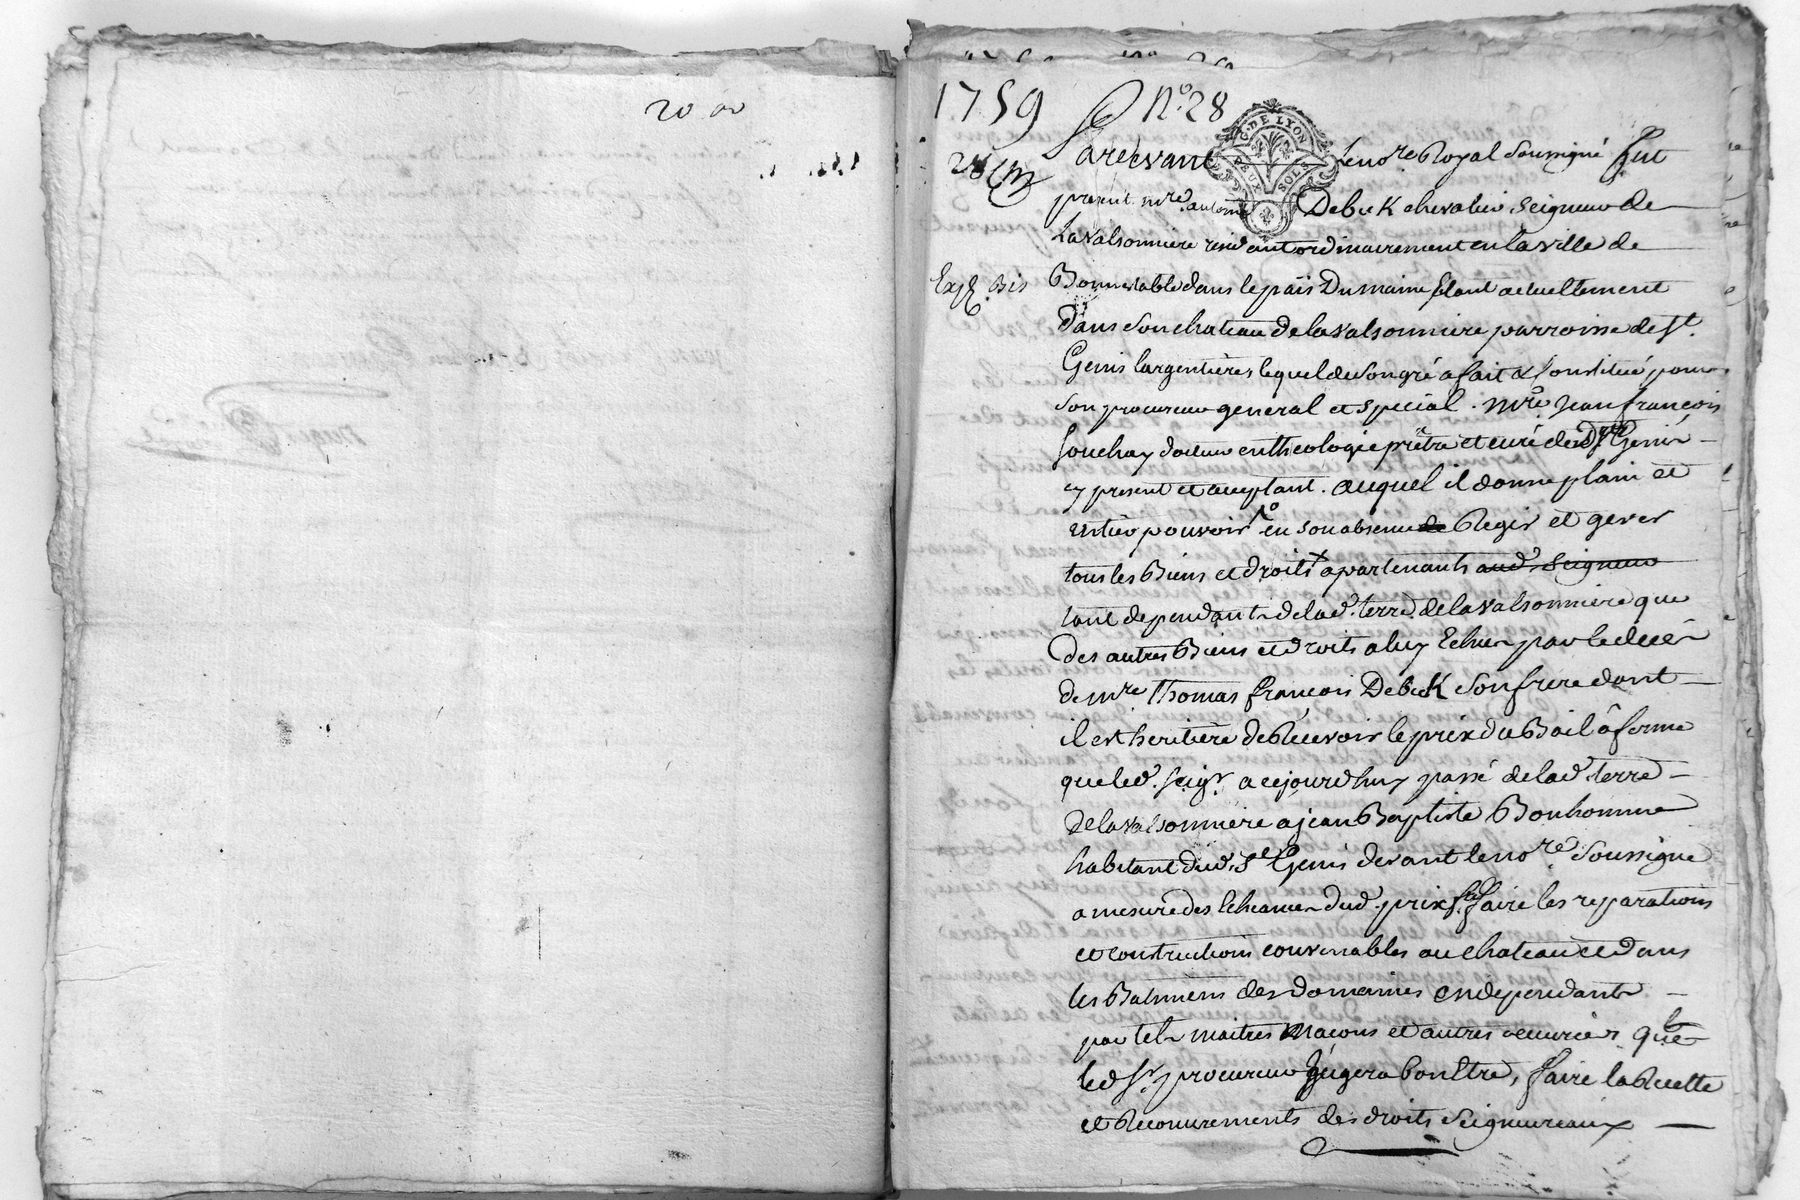 20
1759
N.° 28
G. DE LYON
DEUX SOLS
Pardevant Le no.re Royal soussigné fut
present m.re antoine Debeck chevalier seigneur de
Lavalsonniere residant ordinairement en la ville de
Exp.é Bis
Bonnestable dans le païs Du maine Etant actuellement
dans son chateau de lavalsonniere parroisse de S.t
Genis largentieres lequel de son gré a fait & Constitué pour
son procureur general et special . m.re jean françois
Souchay docteur en theologie prêtre et curé dud. S.t Genis
y present et acceptant . auquel il donne plain et
entier pouvoir en son absence de Regir et gerer
tous les Biens et droits apartenants aud. seigneur
tant dependants de lad. terre de lavalsonniere que
des autres Biens et droits a luy Echus par le decès
de m.re Thomas françois Debeck son frere dont
il est heritière de Recevoir le prix du Bail â ferme
que led. seig.r a cejourdhuy passé de lad. terre
de lavalsonniere a jean Baptiste Bonhomme
habitant dud. S.t Genis devant le no.re soussigné
a mesure des Echeances dud. prix faire les reparations
et constructions convenables au chateau et dans
les Batimens des domaines en dependants
par tels maitres maçons et autres ouvriers que
led. S.r procureur jugera bon Etre, faire la Recette
et Recouvrements des droits seigneuriaux